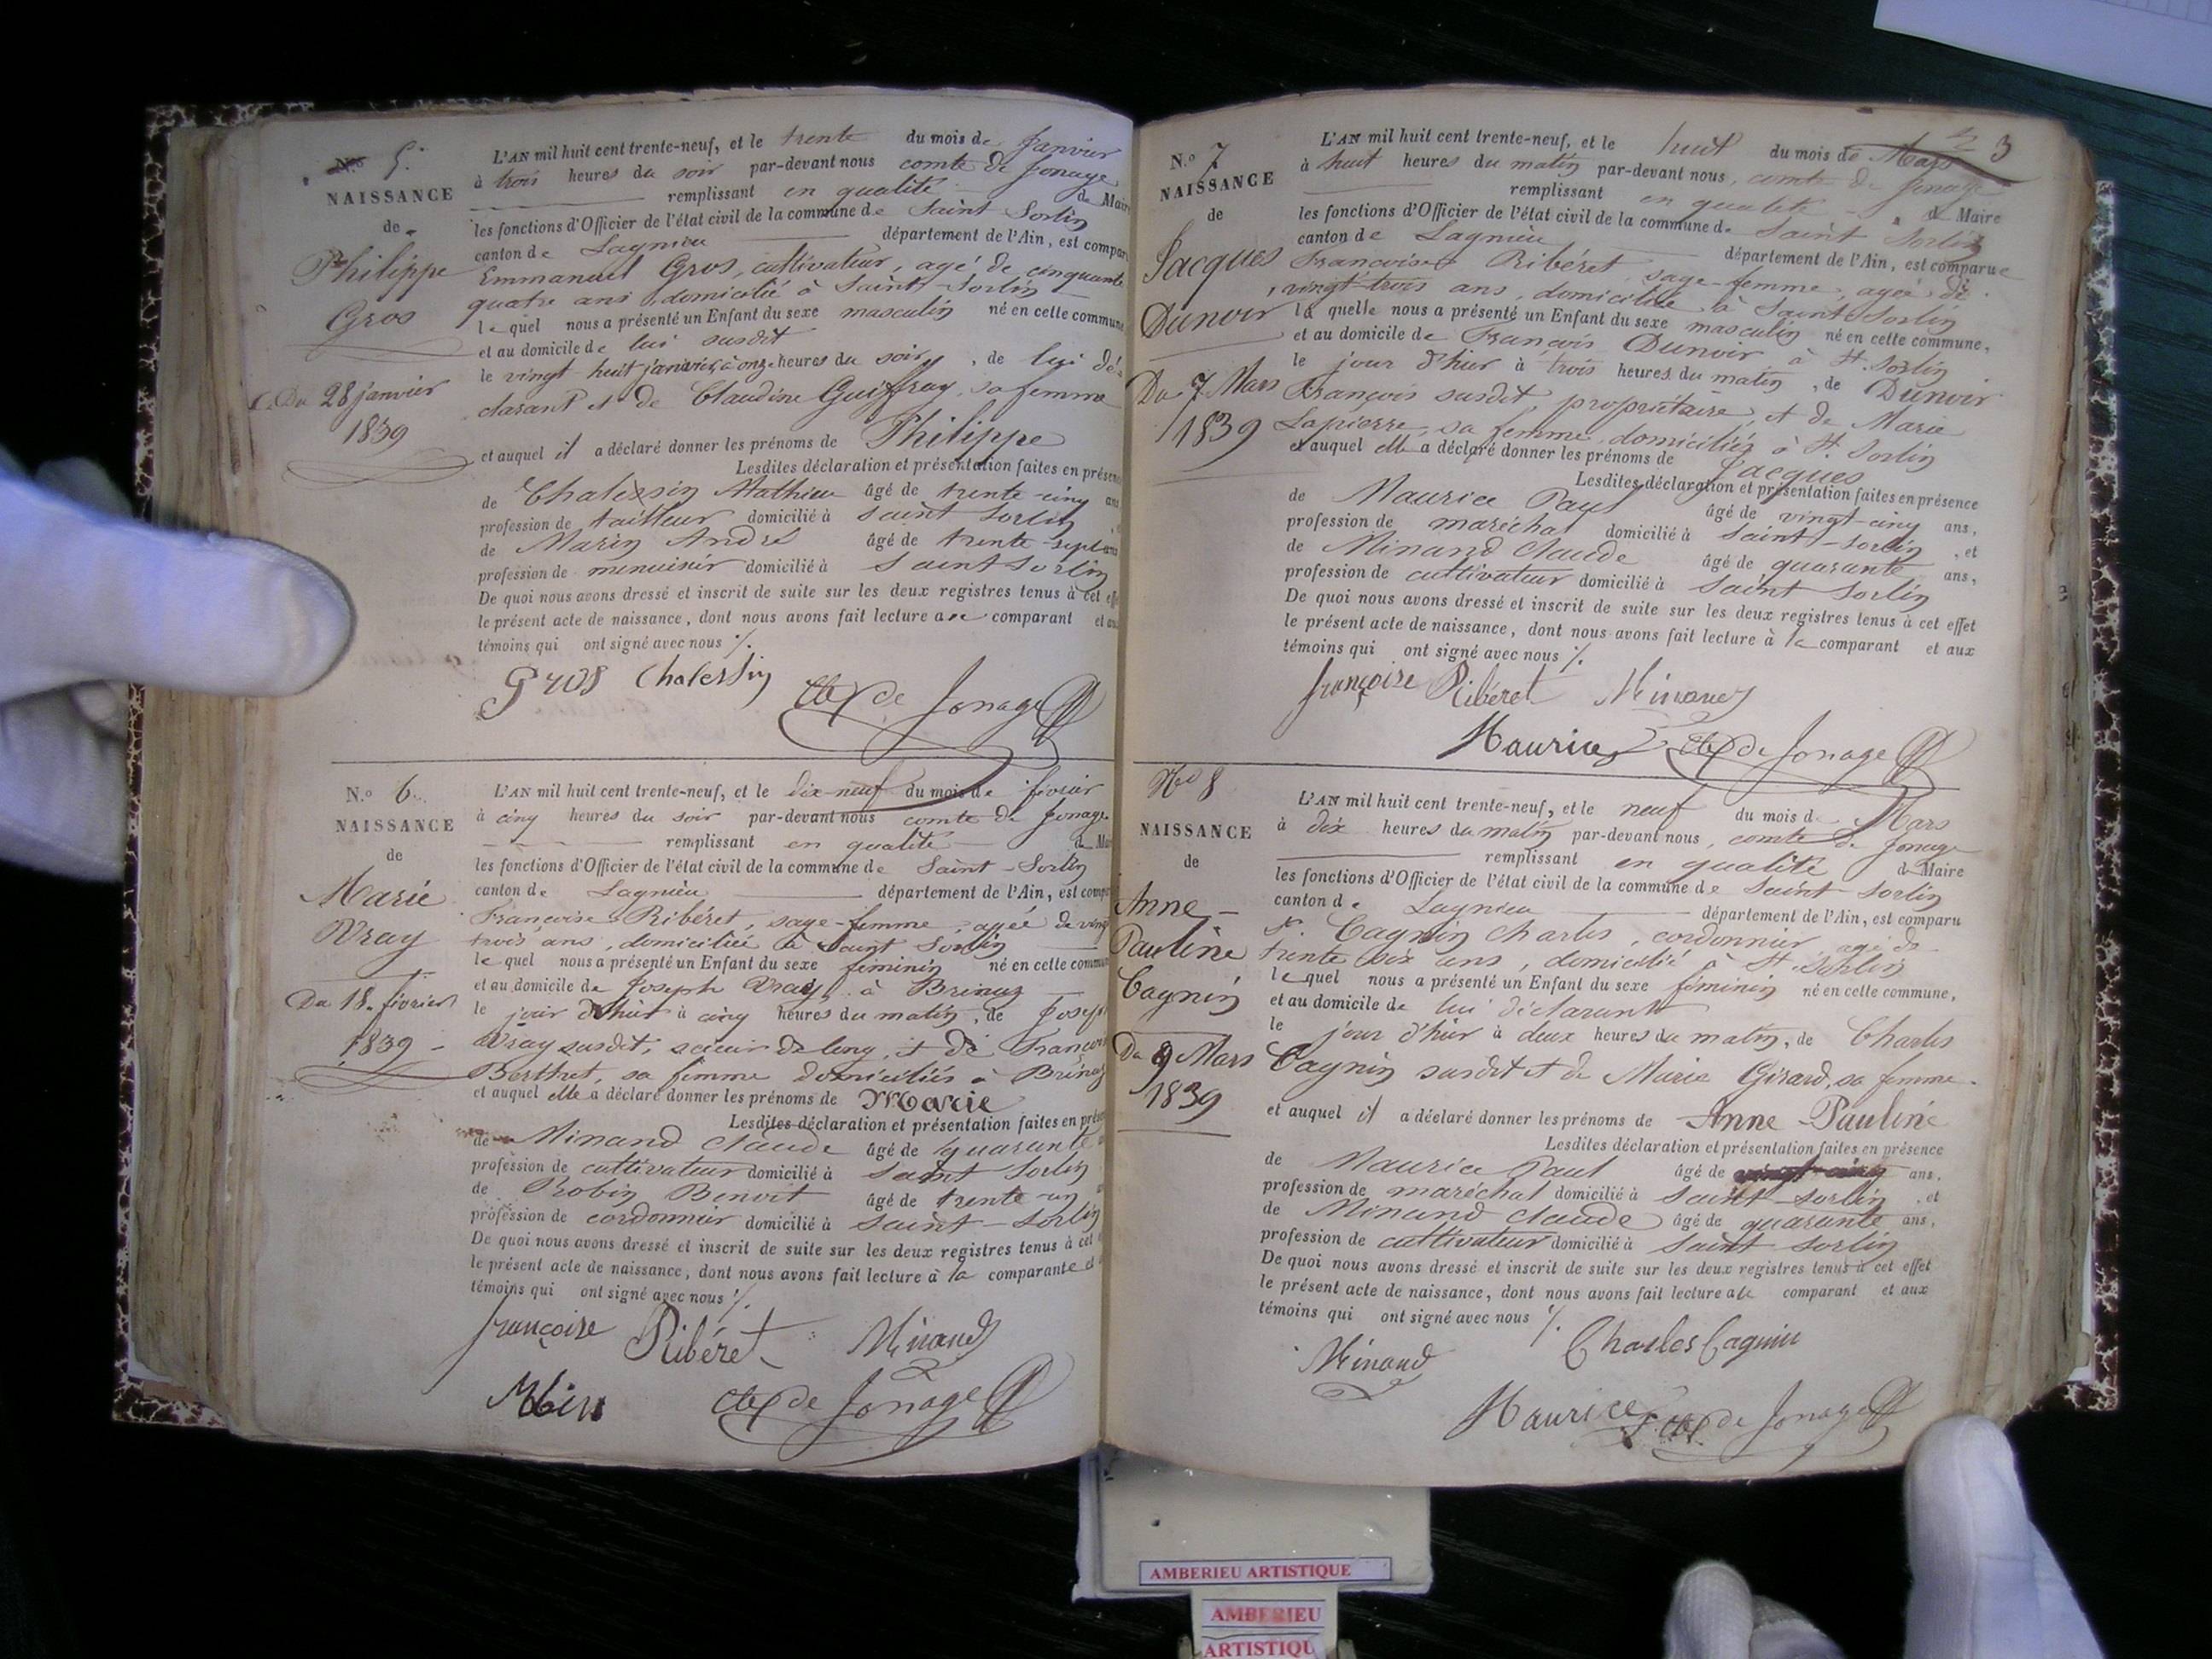 N.os 5.
NAISSANCE
de
Philippe
Gros
Du 28 janvier
1839
L'AN mil huit cent trente-neuf, et le trente du mois de Janvier
à trois heures du soir par-devant nous comte de Jonage
remplissant en qualité de Maire
les fonctions d'Officier de l'état civil de la commune de Saint-Sorlin
canton de Lagnieu département de l'Ain, est compar
Emmanuel Gros, cultivateur, agé de cinquante
quatre ans domicilié à Saint-Sorlin
lequel nous a présenté un Enfant du sexe masculin né en cette commune
et au domicile de lui susdit
le vingt huit janvier, à onze heures du soir, de lui dé=
clarant et de Claudine Guiffray, sa femme
et auquel il a déclaré donner les prénoms de Philippe
Lesdites déclaration et présentation faites en présen
de Chalessin Mathieu âgé de trente-cinq ans
profession de tailleur domicilié à saint Sorlin
de Marin André âgé de trente-sept ans
profession de menuisier domicilié à Saint Sorlin
De quoi nous avons dressé et inscrit de suite sur les deux registres tenus à cet effe
le présent acte de naissance, dont nous avons fait lecture au comparant et au
témoins qui ont signé avec nous %.
Gros Chalessin
de Jonage
N.o 6.
NAISSANCE
de
Marie
Vray
Du 18. février
1839
L'AN mil huit cent trente-neuf, et le dix-neuf du mois de février
à cinq heures du soir par-devant nous comte de Jonage
remplissant en qualité de Mai
les fonctions d'Officier de l'état civil de la commune de Saint-Sorlin
canton de Lagnieu département de l'Ain, est compa
Françoise Ribéret, sage-femme, agée de vingt
trois ans, domiciliée à Saint Sorlin
lequel nous a présenté un Enfant du sexe féminin né en cette commun
et au domicile de Joseph Vray à
le jour d'hier à cinq heures du matin, de Joseph
Vray susdit, scieur de long, et de François
Berthet, sa femme domiciliés à
et auquel elle a déclaré donner les prénoms de Marie
Lesdites déclaration et présentation faites en prése
de Minand Claude âgé de quarante
profession de cultivateur domicilié à saint Sorlin
de Robin Benoit âgé de trente-un
profession de cordonnier domicilié à Saint-Sorlin
De quoi nous avons dressé et inscrit de suite sur les deux registres tenus à cet
le présent acte de naissance, dont nous avons fait lecture à la comparante et
témoins qui ont signé avec nous %.
françoise Ribéret Minand
de Jonage
3
N.o 7
NAISSANCE
de
Jacques
Dunoir
Du 7 Mars
1839
L'AN mil huit cent trente-neuf, et le huit du mois de Mars
à huit heures du matin par-devant nous, comte de Jonage
remplissant en qualité de Maire
les fonctions d'Officier de l'état civil de la commune de Saint Sorlin
canton de Lagnieu département de l'Ain, est comparue
Françoise Ribéret, sage-femme, agée de
vingt-trois ans, domiciliée à Saint Sorlin
la quelle nous a présenté un Enfant du sexe masculin né en cette commune,
et au domicile de François Dunoir à St. Sorlin
le jour d'hier à trois heures du matin, de Dunoir
François susdit, propriétaire, et de Marie
Lapierre, sa femme, domiciliés à St. Sorlin
et auquel elle a déclaré donner les prénoms de Jacques
Lesdites déclaration et présentation faites en présence
de Maurice Paul âgé de vingt-cinq ans,
profession de maréchal domicilié à Saint-Sorlin, et
de Minand Claude âgé de quarante ans,
profession de cultivateur domicilié à saint Sorlin
De quoi nous avons dressé et inscrit de suite sur les deux registres tenus à cet effet
le présent acte de naissance, dont nous avons fait lecture à la comparant et aux
témoins qui ont signé avec nous %.
françoise Ribéret Minand
Maurice de Jonage
No 8
NAISSANCE
de
Anne-
Pauline
Cagnin
Du 9 Mars
1839
L'AN mil huit cent trente-neuf, et le neuf du mois de Mars
à dix heures du matin par-devant nous, comte de Jonage
remplissant en qualité de Maire
les fonctions d'Officier de l'état civil de la commune de Saint Sorlin
canton de Lagnieu département de l'Ain, est comparu
Sr. Cagnin Charles, cordonnier, agé de
trente six ans, domicilié à St. Sorlin
lequel nous a présenté un Enfant du sexe féminin né en cette commune,
et au domicile de lui déclarant
le jour d'hier à deux heures du matin, de Charles
Cagnin susdit et de Marie Girard, sa femme.
et auquel il a déclaré donner les prénoms de Anne-Pauline
Lesdites déclaration et présentation faites en présence
de Maurice Paul âgé de vingt-cinq ans,
profession de maréchal domicilié à Saint-Sorlin, et
de Minand Claude âgé de quarante ans,
profession de cultivateur domicilié à Saint Sorlin
De quoi nous avons dressé et inscrit de suite sur les deux registres tenus à cet effet
le présent acte de naissance, dont nous avons fait lecture au comparant et aux
témoins qui ont signé avec nous %.
Minand Charles Cagnin
Maurice de Jonage
AMBERIEU ARTISTIQUE
AMBERIEU
ARTISTIQU